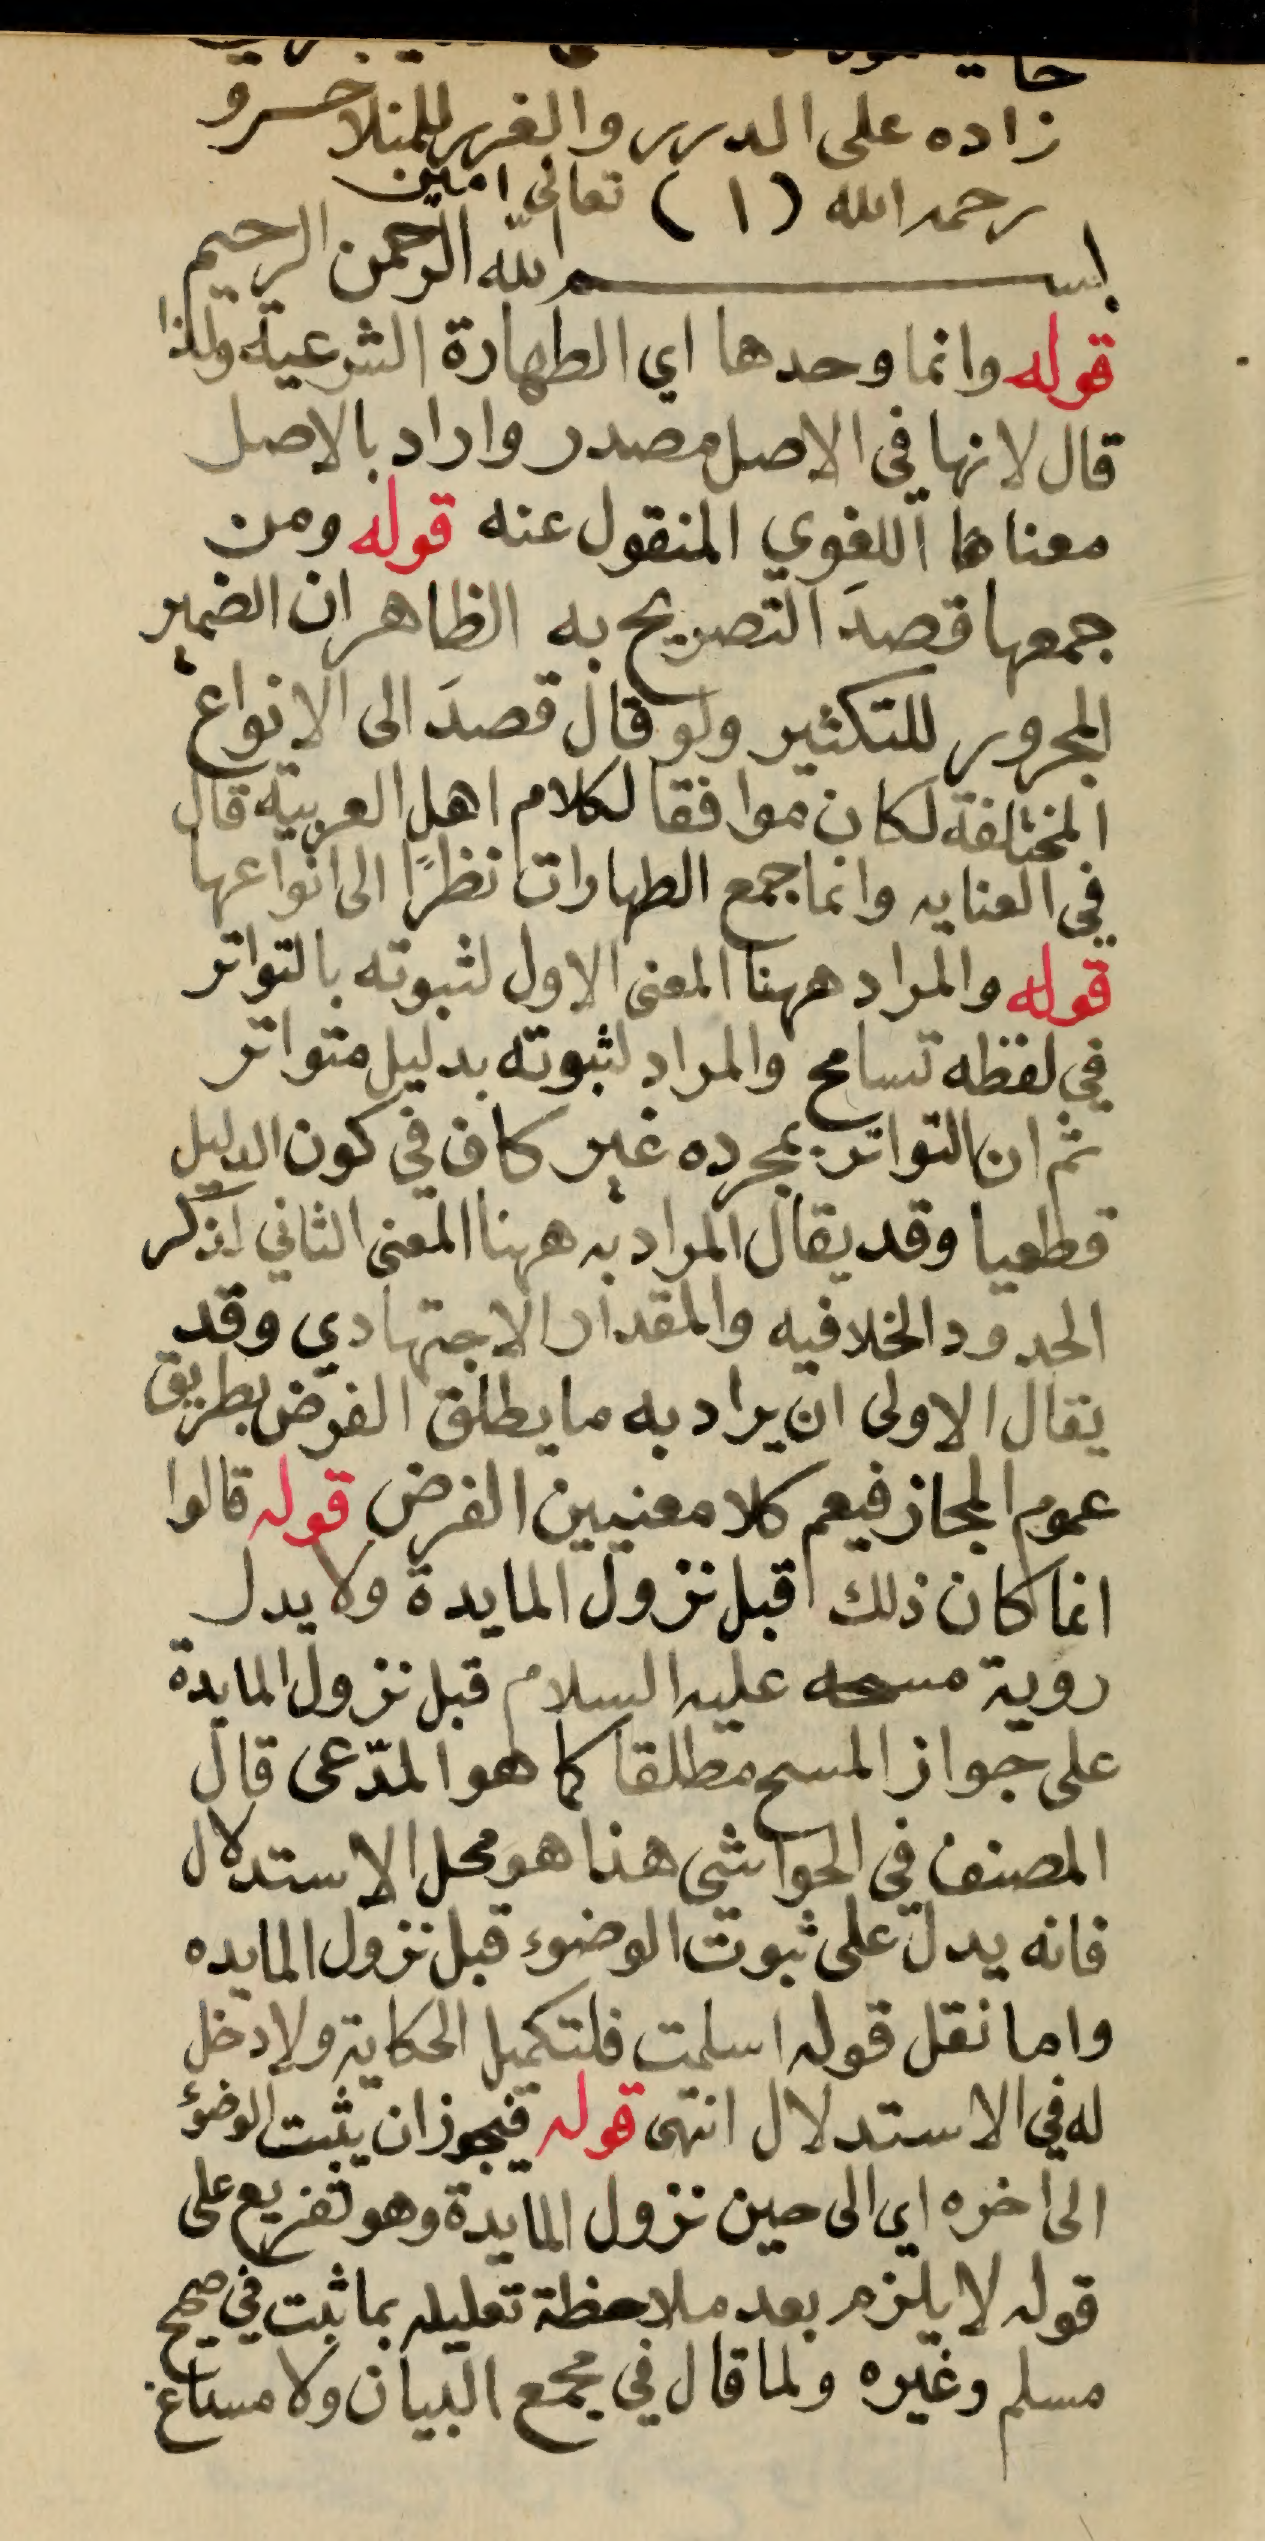 زاده على الدرر والغرر للمنلا خسرو
رحمه الله (١) تعالى امين
بسم الله الرحمن الرحيم
قوله وانما وحدها اي الطهارة الشرعية ولهذا
قال لانها في الاصل مصدر واراد بالاصل
معناها اللغوي المنقول عنه قوله ومن
جمعها قصدَ التصريح به الظاهر ان الضمير
المجرور للتكثير ولو قال قصدَ الى الانواع
المختلفة لكان موافقا لكلام اهل العربية قال
في العنايه وانما جمع الطهارات نظرًا الى انواعها
قوله والمراد ههنا المعنى الاول لثبوته بالتواتر
في لفظه تسامح والمراد لثبوته بدليل متواتر
ثم ان التواتر بمجرده غير كاف في كون الدليل
قطعيا وقد يقال المراد به ههنا المعنى الثاني اذ ذكر
الحدود الخلافيه والمقدار الاجتهادي وقد
يقال الاولى ان يراد به ما يطلق الفرض بطريق
عموم المجاز فيعم كلا معنيين الفرض قوله قالوا
انما كان ذلك قبل نزول المايدة ولا يدل
روية مسحه عليه السلام قبل نزول المايدة
على جواز المسح مطلقا كما هو المدّعى قال
المصنف في الحواشي هنا هو محل الاستدلال
فانه يدل على ثبوت الوضوء قبل نزول المايده
واما نقل قوله اسلمت فلتكميل الحكاية ولا دخل
له في الاستدلال انتهى قوله فيجوز ان يثبت الوضوء
الى اخره اي الى حين نزول المايدة وهو تفريع على
قوله لا يلزم بعد ملاحظة تعليله بما ثبت في صحيح
مسلم وغيره ولما قال في مجمع البيان ولا مساغ